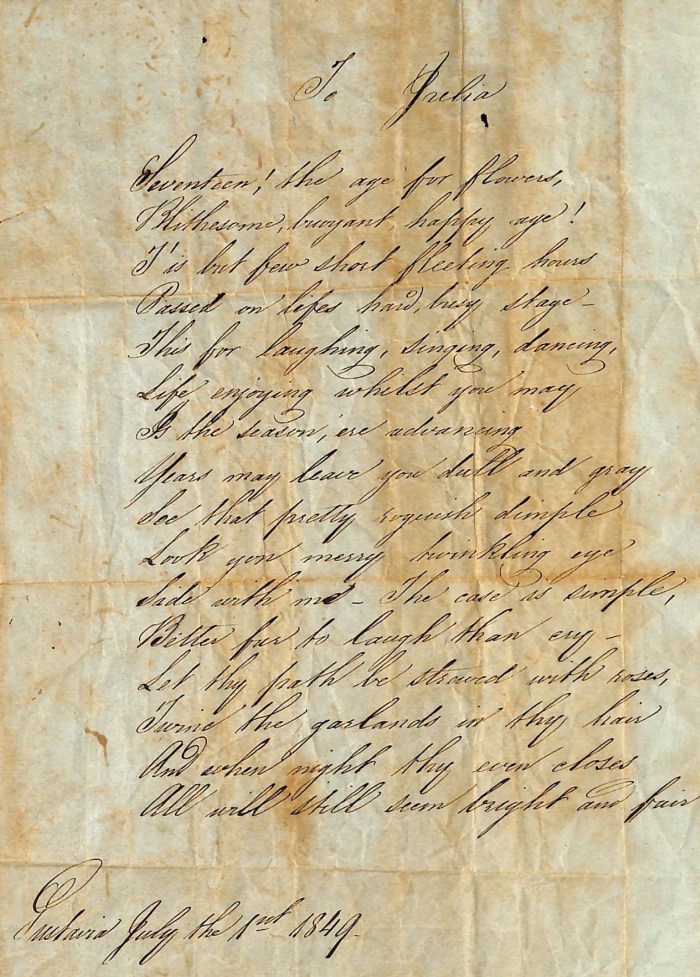 To Julia
Seventeen! the age for flowers,
Blithesome, buoyant, happy age!
T'is but few short fleeting hours
Passed on lifes hard, busy stage –
This for laughing, singing, dancing,
Life enjoying whilst you may
Is the season, 'ere advancing
Years may leave you dull and gray
See that pretty roguish dimple
Look yon merry twinkling eye
Side with me – The case is simple,
Better far to laugh than cry –
Let thy path be strewed with roses,
Twine the garlands in thy hair
And when night thy even closes
All will still seem bright and fair
Gustavia July the 1st 1849.